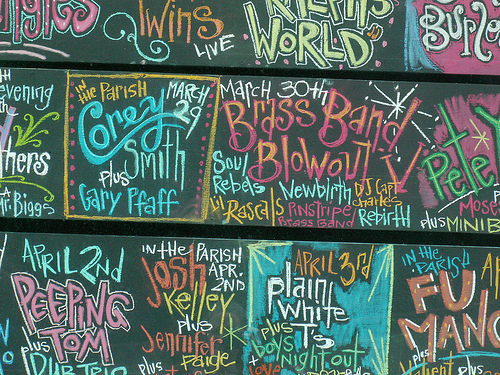 Twins
LIVE
WORLD
Evening
thers
Mr. Biggs
in the PARISH
MARCH
29
Corey
Smith
plus
Gary Pfaff
March 30th
Brass Band
Blowout
Soul
Rebels
Newbirth
DJ Capt
Charles
Lil Rascals
Pinstripe
Brass Band
Rebirth
Pete
Mose
plus MINI B
APRIL 2nd
PEEPING
TOM
plus
DUB TRIO
IN the PARISH
APR.
2ND
Josh
Kelley
plus
Jennifer
Paige
plus
APRIL 3rd
Plain
White
T's
plus
boys
Night out
IN the
PARISH
FU
MANC
plus